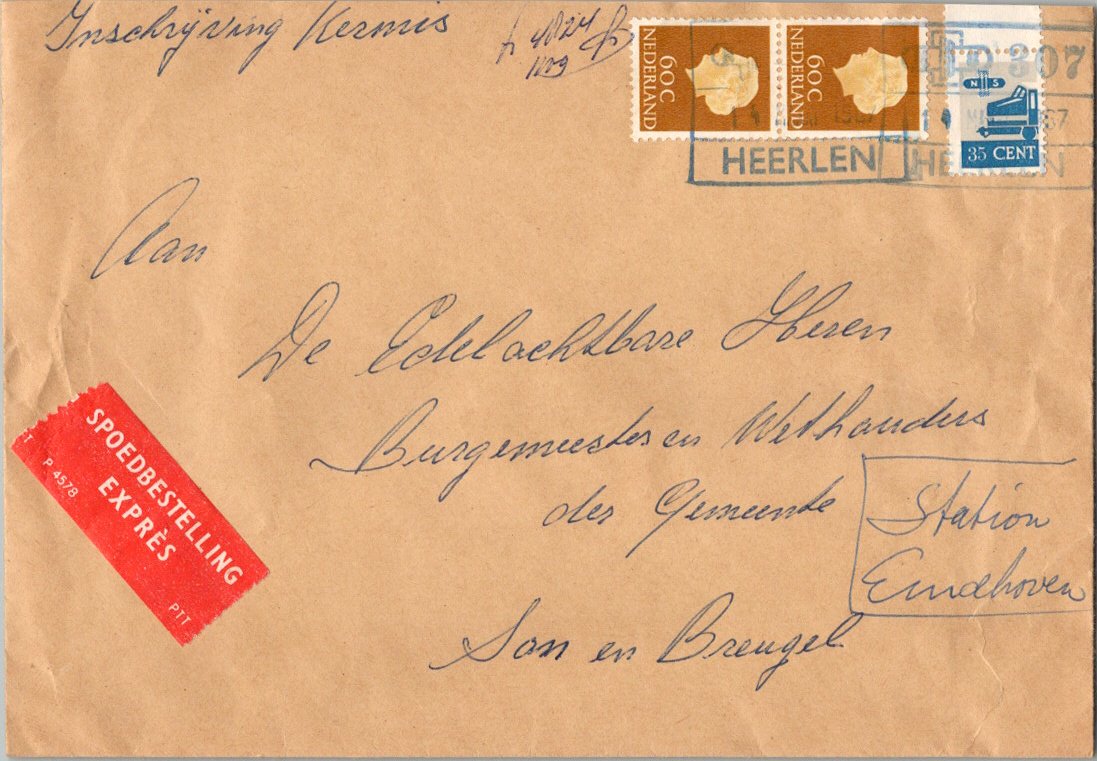 Inschrijving Kermis
4824
1109
60C
NEDERLAND
60C
NEDERLAND
307
N S
35 CENT
1967
HEERLEN
HEERLEN
Aan
De Edelachtbare Heren
Burgemeester en Wethouders
der Gemeente
Station
Eindhoven
Son en Breugel
SPOEDBESTELLING
EXPRÈS
P 4578
PTT